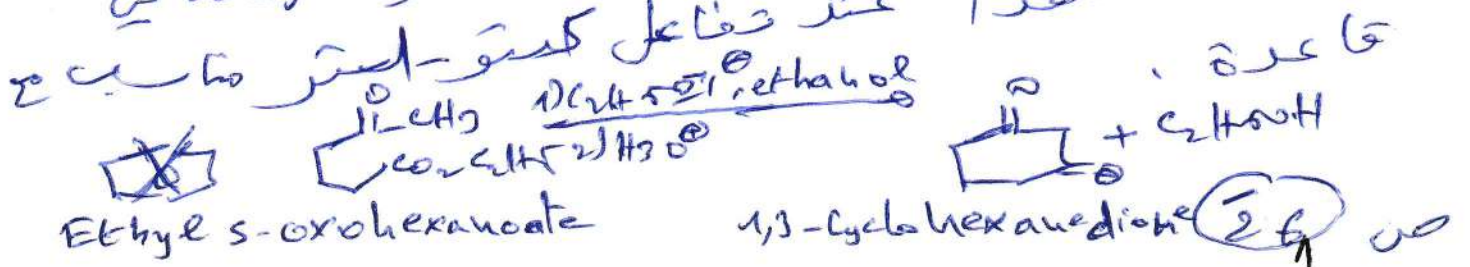 عند تفاعل كيتو-استر مناسب مع
قاعدة.
O
CH3 1) C2H5O⊖, ethanol O
CO2C2H5 2) H3O⊕ O + C2H5OH
Ethyl 5-oxohexanoate 1,3-Cyclohexanedione ص 26